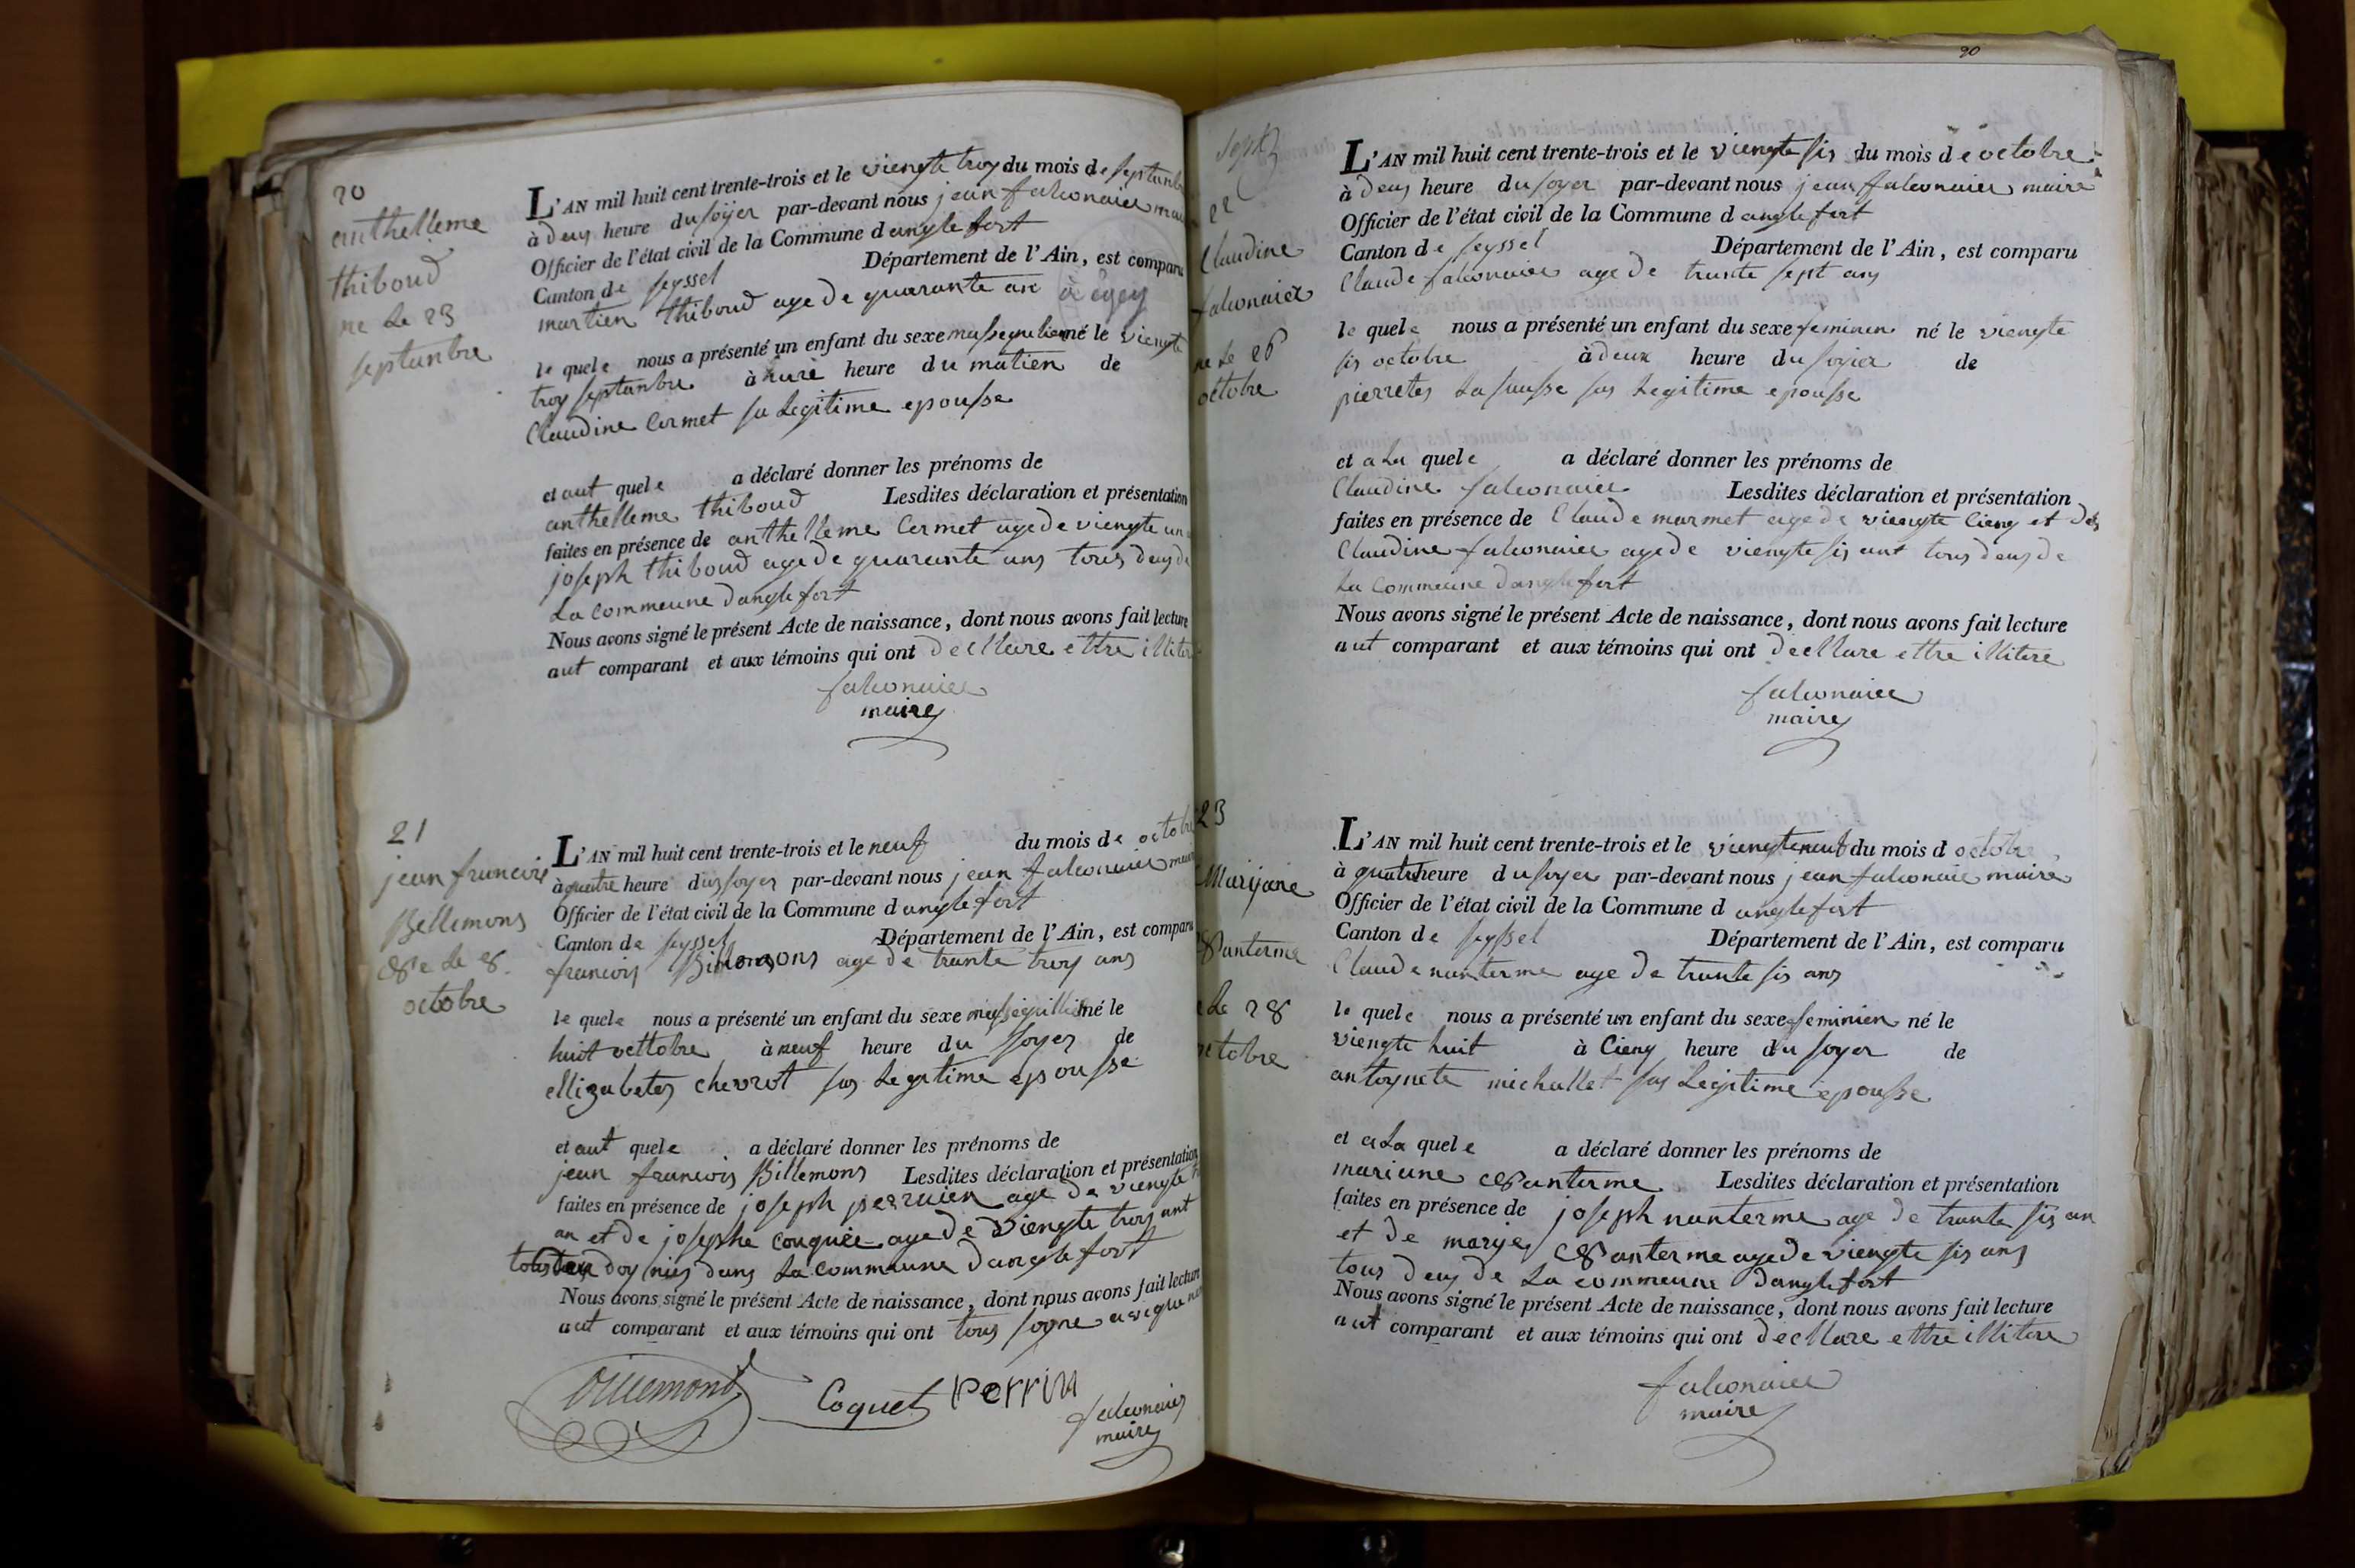 20
anthelleme
thiboud
ne Le 23
septanbre
L'AN mil huit cent trente-trois et le viengte troy du mois de septanb
à deus heure du soyer par-devant nous jean falconaier mai
Officier de l'état civil de la Commune d anglefort
Canton de seyssel Département de l'Ain, est comparu
martien thiboud age de quarante an
le quele nous a présenté un enfant du sexe né le viengte
troy septanbre à heure du matien de
Claudine Cermet sa Legitime epousse
et aut quele a déclaré donner les prénoms de
anthelleme thiboud Lesdites déclaration et présentation
faites en présence de anthelleme Cermet age de viengte un
joseph thiboud age de quarante ans tous deus de
La commeune danglefort
Nous avons signé le présent Acte de naissance, dont nous avons fait lecture
aut comparant et aux témoins qui ont decllare ettre illiter
falconaier
maire
21
jean francois
Bellemons
Ne Le 8
octobre
L'AN mil huit cent trente-trois et le neuf du mois de octobr
à quatre heure dus soyer par-devant nous jean falconaier mair
Officier de l'état civil de la Commune d anglefort
Canton de seyssel Département de l'Ain, est comparu
francois age de trante troy ans
le quele nous a présenté un enfant du sexe né le
huit octtobre à neuf heure du soyer de
ellizabetes chevrot sas Legitime epousse
et aut quele a déclaré donner les prénoms de
jean francois Billemons Lesdites déclaration et présentation
faites en présence de joseph perruien age de viengte
an et de josephe couquée age de viengte troy ant
tous dans La commeune danglefort
Nous avons signé le présent Acte de naissance, dont nous avons fait lecture
aut comparant et aux témoins qui ont tous sogne aveque
Villemont Coquet Perrin
falconaier
maire
90
22
Claudine
falconaier
ne Le 26
octobre
L'AN mil huit cent trente-trois et le viengte sis du mois de octobre
à deus heure du soyer par-devant nous jean falconaier maire
Officier de l'état civil de la Commune d anglefort
Canton de seyssel Département de l'Ain, est comparu
Claude falconaier age de trante sept ans
le quele nous a présenté un enfant du sexe feminien né le viengte
sis octobre à deux heure du soyier de
pierretes La sausse sas Legitime epousse
et a La quele a déclaré donner les prénoms de
Claudine falconaier Lesdites déclaration et présentation
faites en présence de Claude marmet age de viengte Cienq et de
Claudine falconaier age de viengte sis ant tous deus de
La commeune danglefort
Nous avons signé le présent Acte de naissance, dont nous avons fait lecture
aut comparant et aux témoins qui ont decllare ettre illitere
falconaier
maire
23
Marijane
Nanterme
e Le 28
octobre
L'AN mil huit cent trente-trois et le viengteneuf du mois d octobre
à quatre heure du soyer par-devant nous jean falconaier maire
Officier de l'état civil de la Commune d anglefort
Canton de seyssel Département de l'Ain, est comparu
Claude nanterme age de trante sis ans
le quele nous a présenté un enfant du sexe feminien né le
viengte huit à Cienq heure du soyer de
antoynete michallet sas Legitime epousse
et a La quele a déclaré donner les prénoms de
mariane Nanterme Lesdites déclaration et présentation
faites en présence de joseph nanterme age de trante sis an
et de marye Nanterme age de viengte sis ans
tous deus de La commeune danglefort
Nous avons signé le présent Acte de naissance, dont nous avons fait lecture
aut comparant et aux témoins qui ont decllare ettre illitere
falconaier
maire